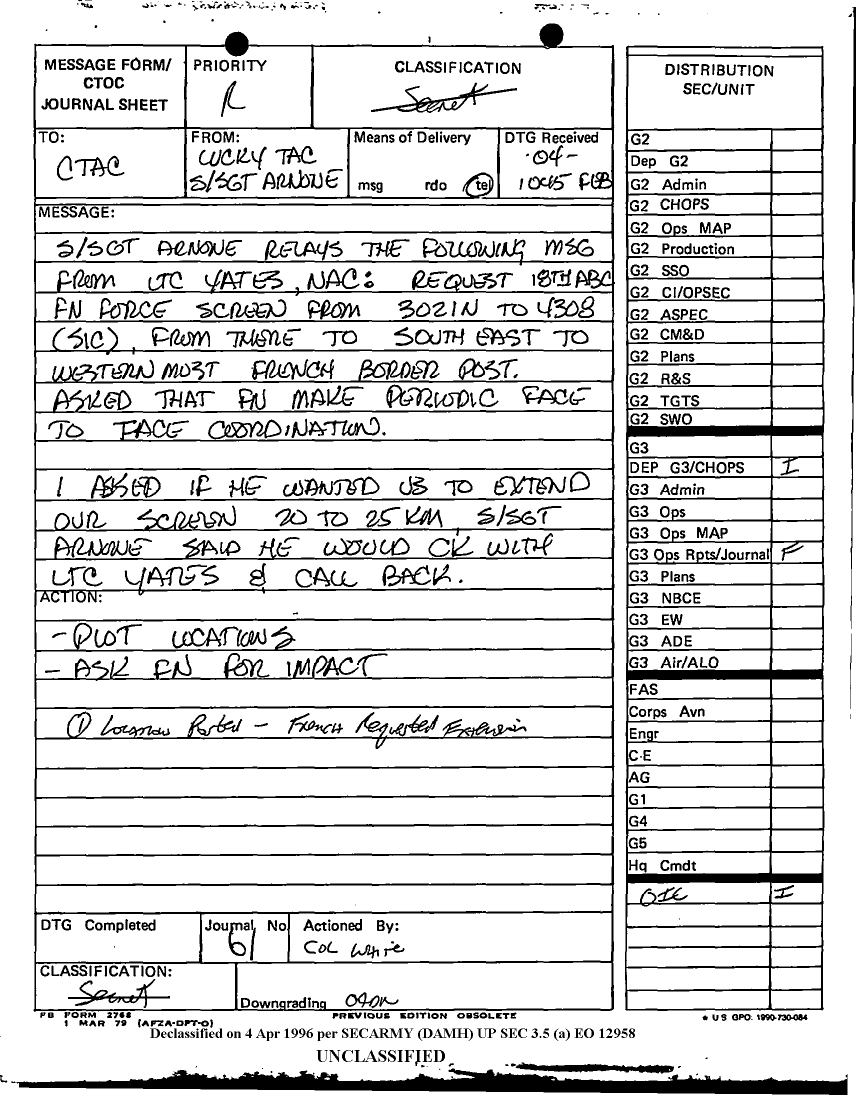 MESSAGE FORM/
CTOC
JOURNAL SHEET
PRIORITY
R
CLASSIFICATION
Secret
TO:
CTAC
FROM:
LUCKY TAC
S/SGT ARNONE
Means of Delivery
msg rdo tel
DTG Received
-04-
1045 FEB
MESSAGE:
S/SGT ARNONE RELAYS THE FOLLOWING MSG
FROM LTC YATES, NAC: REQUEST 18TH ABC
FN FORCE SCREEN FROM 3021N TO 4308
(SIC), FROM THERE TO SOUTH EAST TO
WESTERN MOST FRENCH BORDER POST.
ASKED THAT FN MAKE PERIODIC FACE
TO FACE COORDINATION.
I ASKED IF HE WANTED US TO EXTEND
OUR SCREEN 20 TO 25 KM, S/SGT
ARNONE SAID HE WOULD CK WITH
LTC YATES & CALL BACK.
ACTION:
- PLOT LOCATIONS
- ASK FN FOR IMPACT
① Location Posted - French Requested Extension
DTG Completed
Journal No
61
Actioned By:
COL White
CLASSIFICATION:
Secret
Downgrading OADR
FB FORM 2768
1 MAR 79 (AFZA-DPT-O)
PREVIOUS EDITION OBSOLETE
DISTRIBUTION
SEC/UNIT
G2
Dep G2
G2 Admin
G2 CHOPS
G2 Ops MAP
G2 Production
G2 SSO
G2 CI/OPSEC
G2 ASPEC
G2 CM&D
G2 Plans
G2 R&S
G2 TGTS
G2 SWO
G3
DEP G3/CHOPS I
G3 Admin
G3 Ops
G3 Ops MAP
G3 Ops Rpts/Journal F
G3 Plans
G3 NBCE
G3 EW
G3 ADE
G3 Air/ALO
FAS
Corps Avn
Engr
C-E
AG
G1
G4
G5
Hq Cmdt
OIC I
★ U S GPO: 1990-730-084
Declassified on 4 Apr 1996 per SECARMY (DAMH) UP SEC 3.5 (a) EO 12958
UNCLASSIFIED